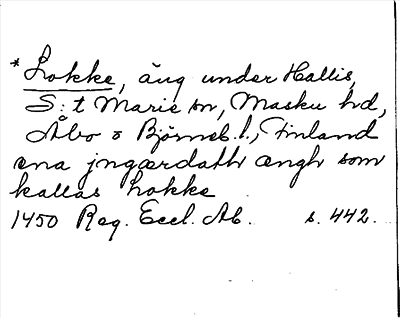 * Lokke, äng under Hallis,
S:t Marie sn, Masku hd,
Åbo o Björneb. l., Finland
ena jngærdath ængh som
kallas Lokke
1450 Reg. Eccl. Ab. s. 442.